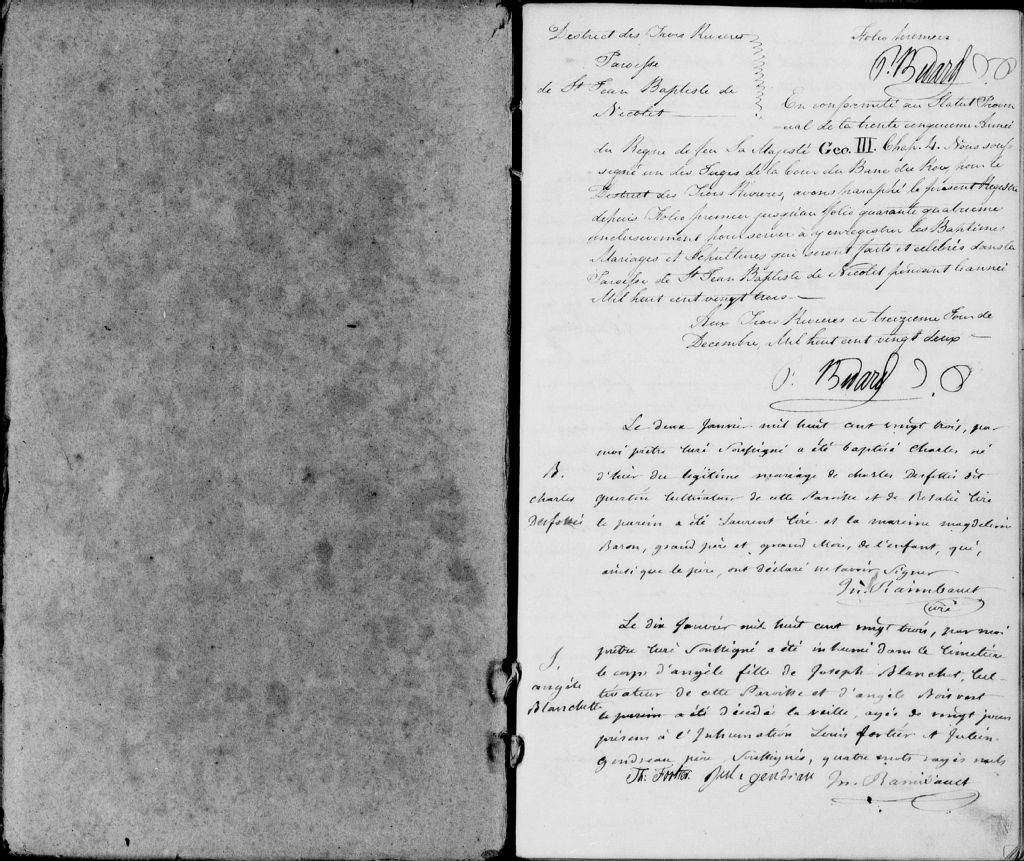 District des Trois Rivieres
Paroisse
de St Jean Baptiste de
Nicolet
Folio premier
P. Bedard
En conformité au Statut Provin
cial de la trente cinquieme Année
du Regne de feu Sa Majesté Geo. III. Chap. 4. Nous sous
signé un des Juges de la Cour du Banc du Roy, pour le
District des Trois Rivieres, avons paraphé le présent Régistre
depuis Folio premier jusqu'au folio quarante quatrieme
inclusivement pour servir à y enregistrer les Baptêmes
Mariages et Sépultures qui seront faits et célébrés dans la
Paroisse de St Jean Baptiste de Nicolet pendant l'année
Mil huit cent vingt trois
Aux Trois Rivieres ce treizieme Jour de
Decembre, Mil huit cent vingt deux
P. Bedard
Le deux Janvier mil huit cent vingt trois, par
moi prêtre Curé Soussigné a été baptisé Charles né
B.
charles
Desfossés
d'hier du légitime mariage de charles Desfossés dit
Cultivateur de cette Paroisse et de Rosalie Cire
le parein a été Laurent Cire et la mareine magdeleine
Baron, grand père et grand Mere, de l'enfant, qui,
ainsi que le père, ont déclaré ne savoir Signer
M. Raimbault
curé
Le dix Janvier mil huit cent vingt trois, par moi
prêtre Curé Soussigné a été inhumé dans le Cimetière
S.
angèle
Blanchette
le corps d'angèle fille de Joseph Blanchet, Cul-
tivateur de cette Paroisse et d'angèle Boisvert
le parein a été décédée la veille, agée de vingt jours
présens à l'Inhumation Louis fortier et Julien
gendreau, père Soussignés, quatre mots rayés nuls
Jul. gendrau
M. Raimbault